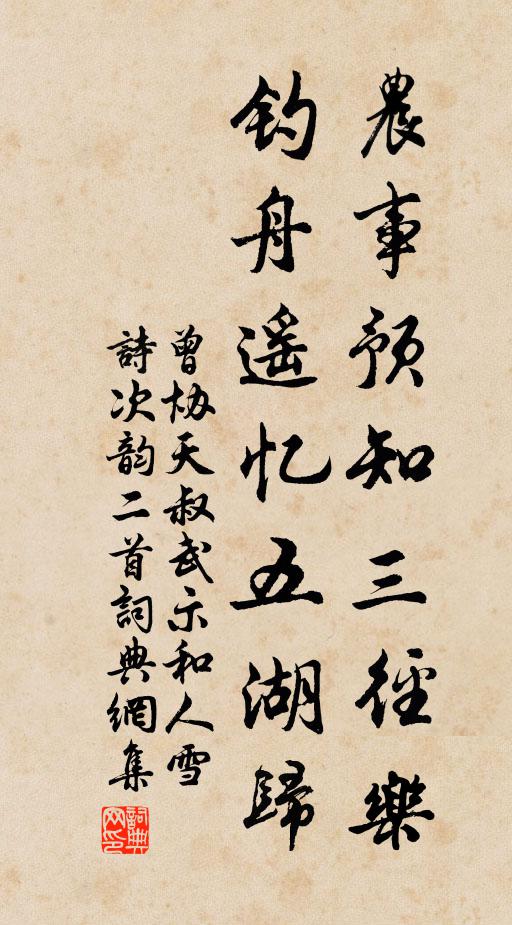 農事預知三徑樂
釣舟遥忆五湖歸
曾协天叔武示和人雪
詩次韵二首詞典網集
詞典网印